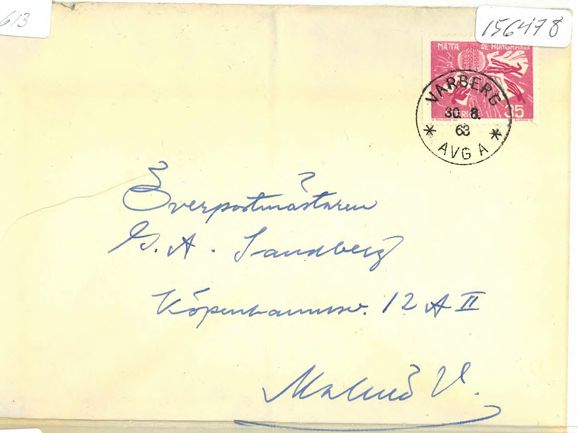 613
156478
MÄTTA DE HUNGRANDE
35
VARBERG
30. 8.
63
* AVG A *
Överpostmästaren
G. A. Sandberg
Köpenhamnsv. 12 A II
Malmö V.